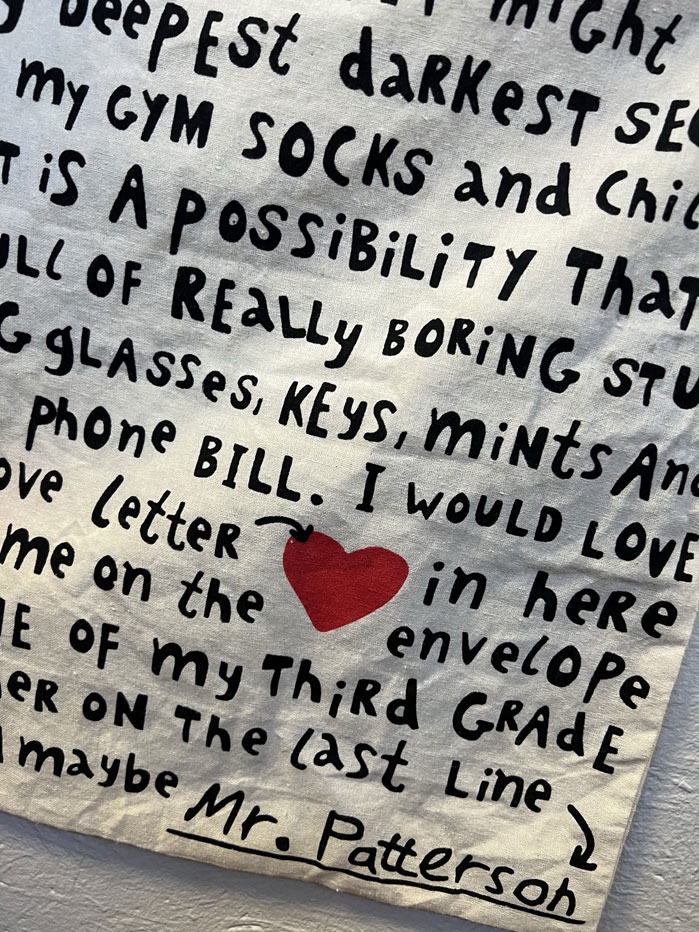 might
DEEPEST darKesT
my GYM SOCKS and
iS A POSSiBiLiTY That
OF REaLLy BORiNG
gLAsses, KEys, miNts And
phone BILL. I WOULD LOVE
Letter in here
me on the envelope
OF my ThiRd GRAdE
ON The Last Line
maybe Mr. Patterson